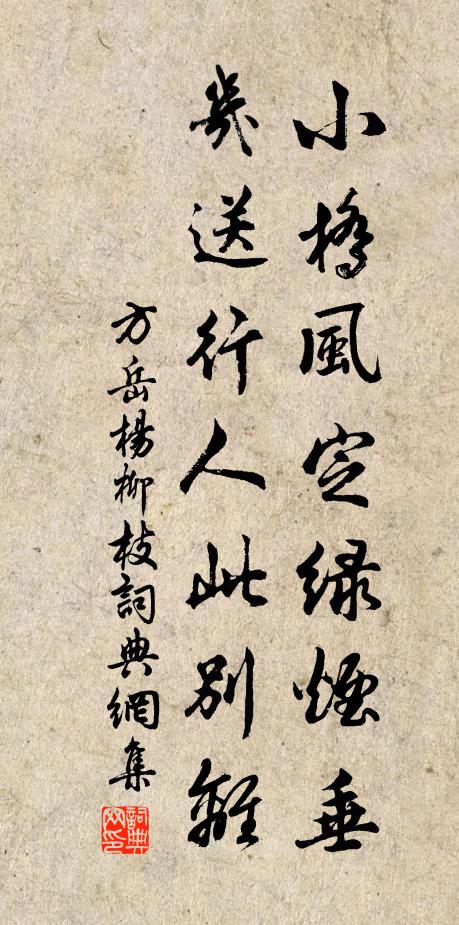 小橋風定緑煙垂
幾送行人此别離
方岳楊柳枝詞典網集
詞典
网印